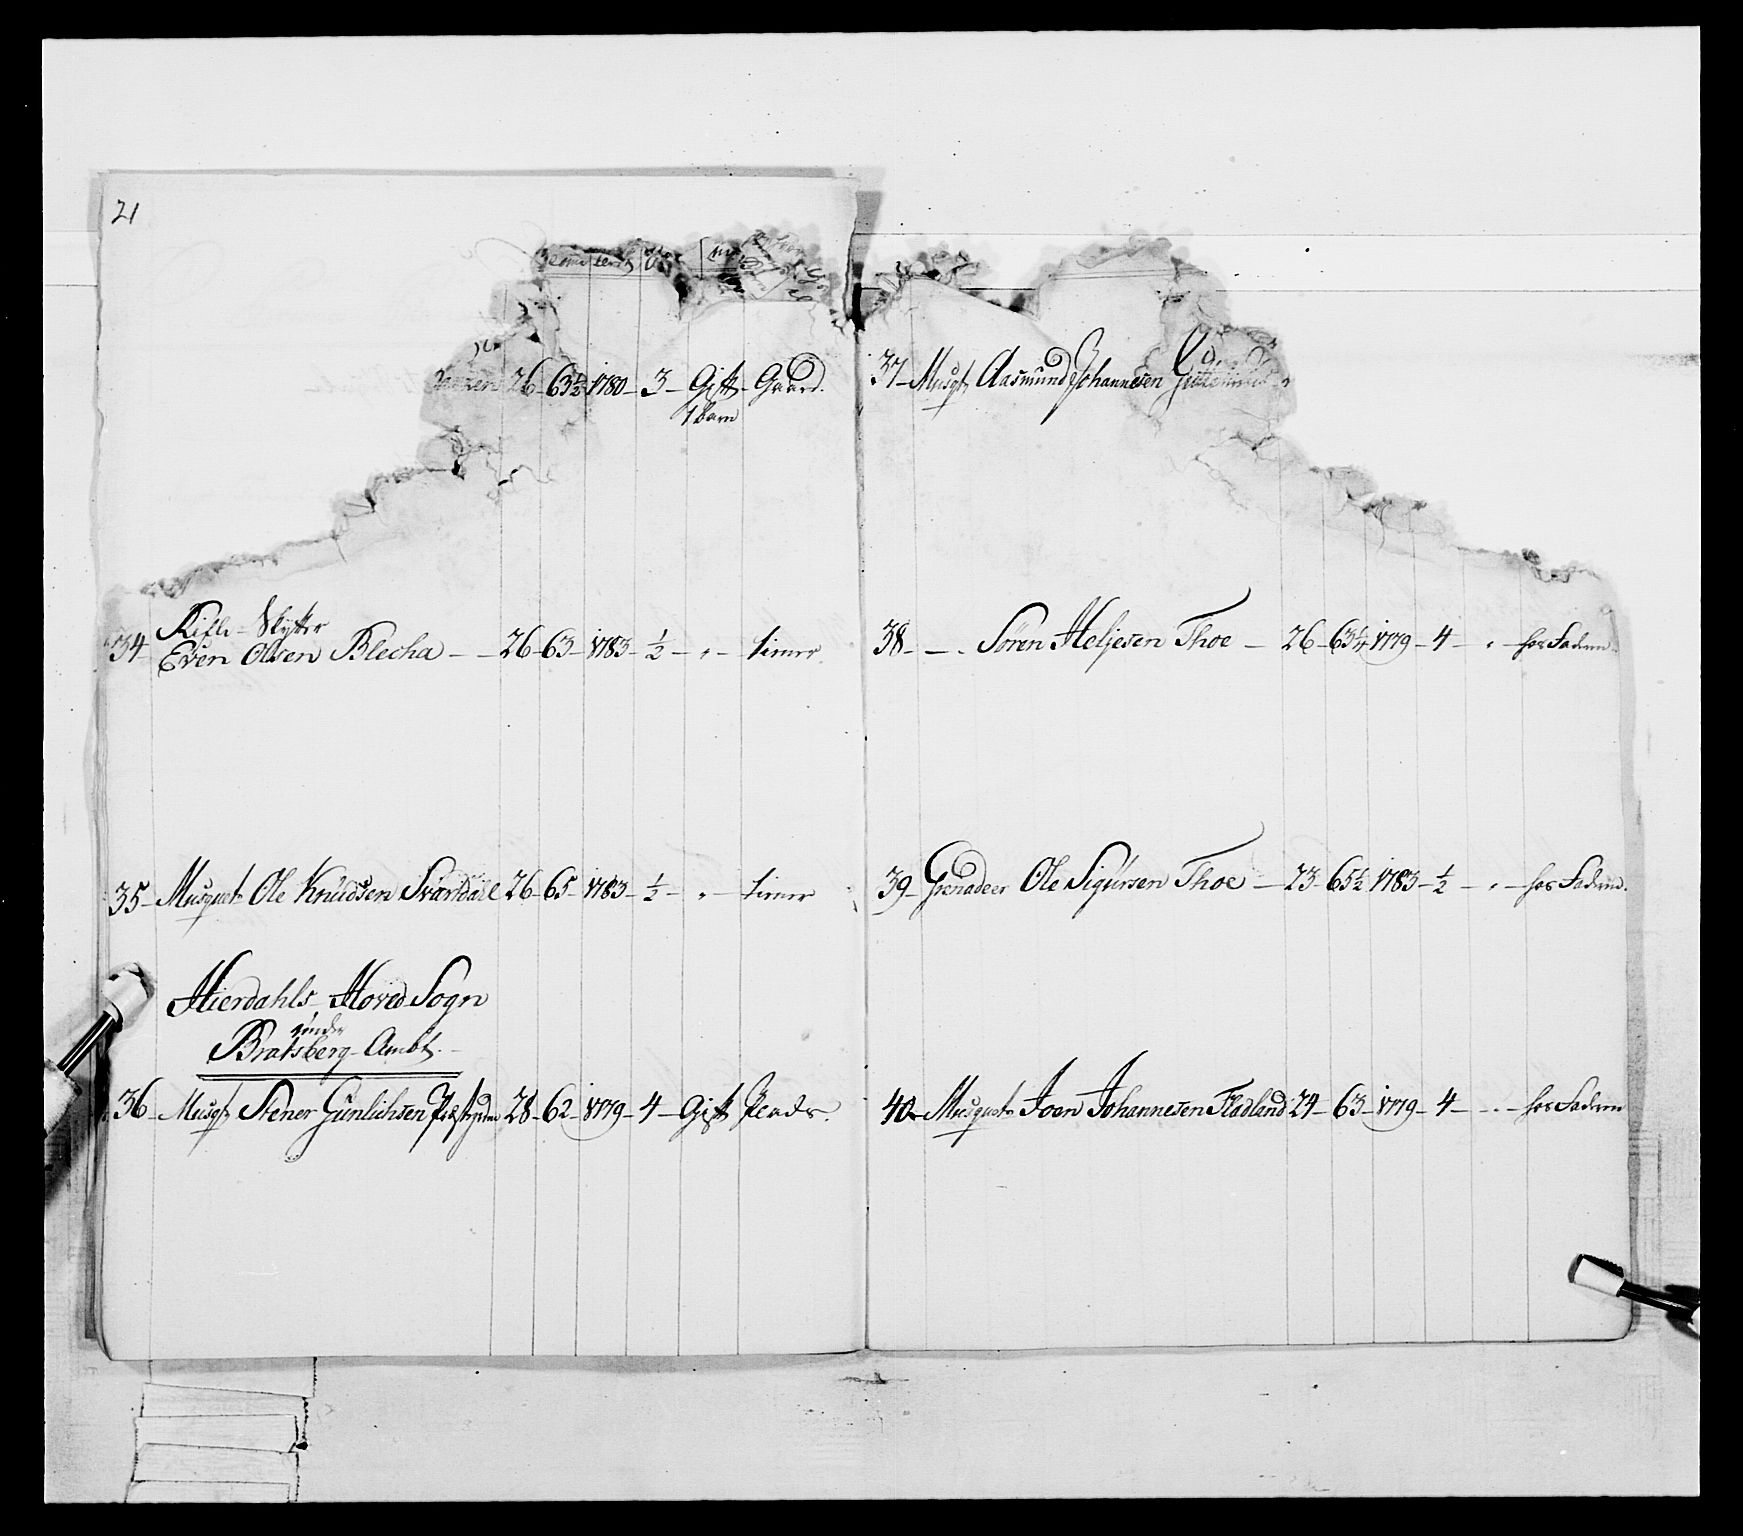 21
26 – 63½ – 1780 – 3 – Gift – Gaard.
1 barn
Rifle-Skytter
34 – Even Olsen Blecha – 26 – 63 – 1783 – ½ – " – tiener
35 – Musquet. Ole Knudsen Svartdall 26 – 65 – 1783 – ½ – " – tiener
Hierdahls Hoved Sogn
under
Bratsberg Ambt.
36 – Musqt. Stener Gunlichsen 28 – 62 – 1779 – 4 – Gift
37 – Musqt. Aasmund Johannesen
38 – – Sören Heljesen Thoe – 26 – 63¼ – 1779 – 4 – " – hos Faderen
39 – Grenadeer Ole Sigursen Thoe – 23 – 65½ – 1783 – ½ – " – hos Faderen.
40 – Musquet. Joen Johannesen Fladland 24 – 63 – 1779 – 4 – " – hos Faderen